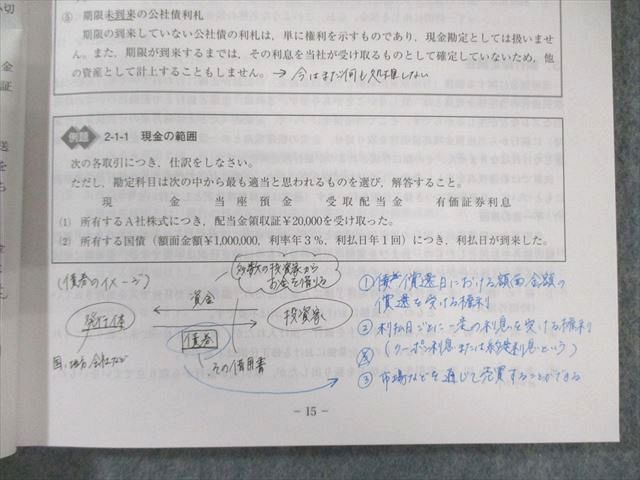 ⑤ 期限未到来の公社債利札
期限の到来していない公社債の利札は、単に権利を示すものであり、現金勘定としては扱いませ
ん。また、期限が到来するまでは、その利息を当社が受け取るものとして確定していないため、他
の資産として計上することもしません。→ 今はまだ何も処理しない
例題 2-1-1 現金の範囲
次の各取引につき、仕訳をしなさい。
ただし、勘定科目は次の中から最も適当と思われるものを選び、解答すること。
現金 当座預金 受取配当金 有価証券利息
(1) 所有するA社株式につき、配当金領収証¥20,000を受け取った。
(2) 所有する国債(額面金額¥1,000,000、利率年3%、利払日年1回)につき、利払日が到来した。
(債券のイメージ)
多数の投資家から
お金を借りる
資金
発行体
投資家
債券
国、地方、会社など
その借用書
① 償還日における額面金額の
償還を受ける権利
② 利払日ごとに一定の利息を受ける権利
(クーポン利息または
利息という)
③ 市場などを通じて売買することができる
- 15 -
切
金
証
送
を
ち